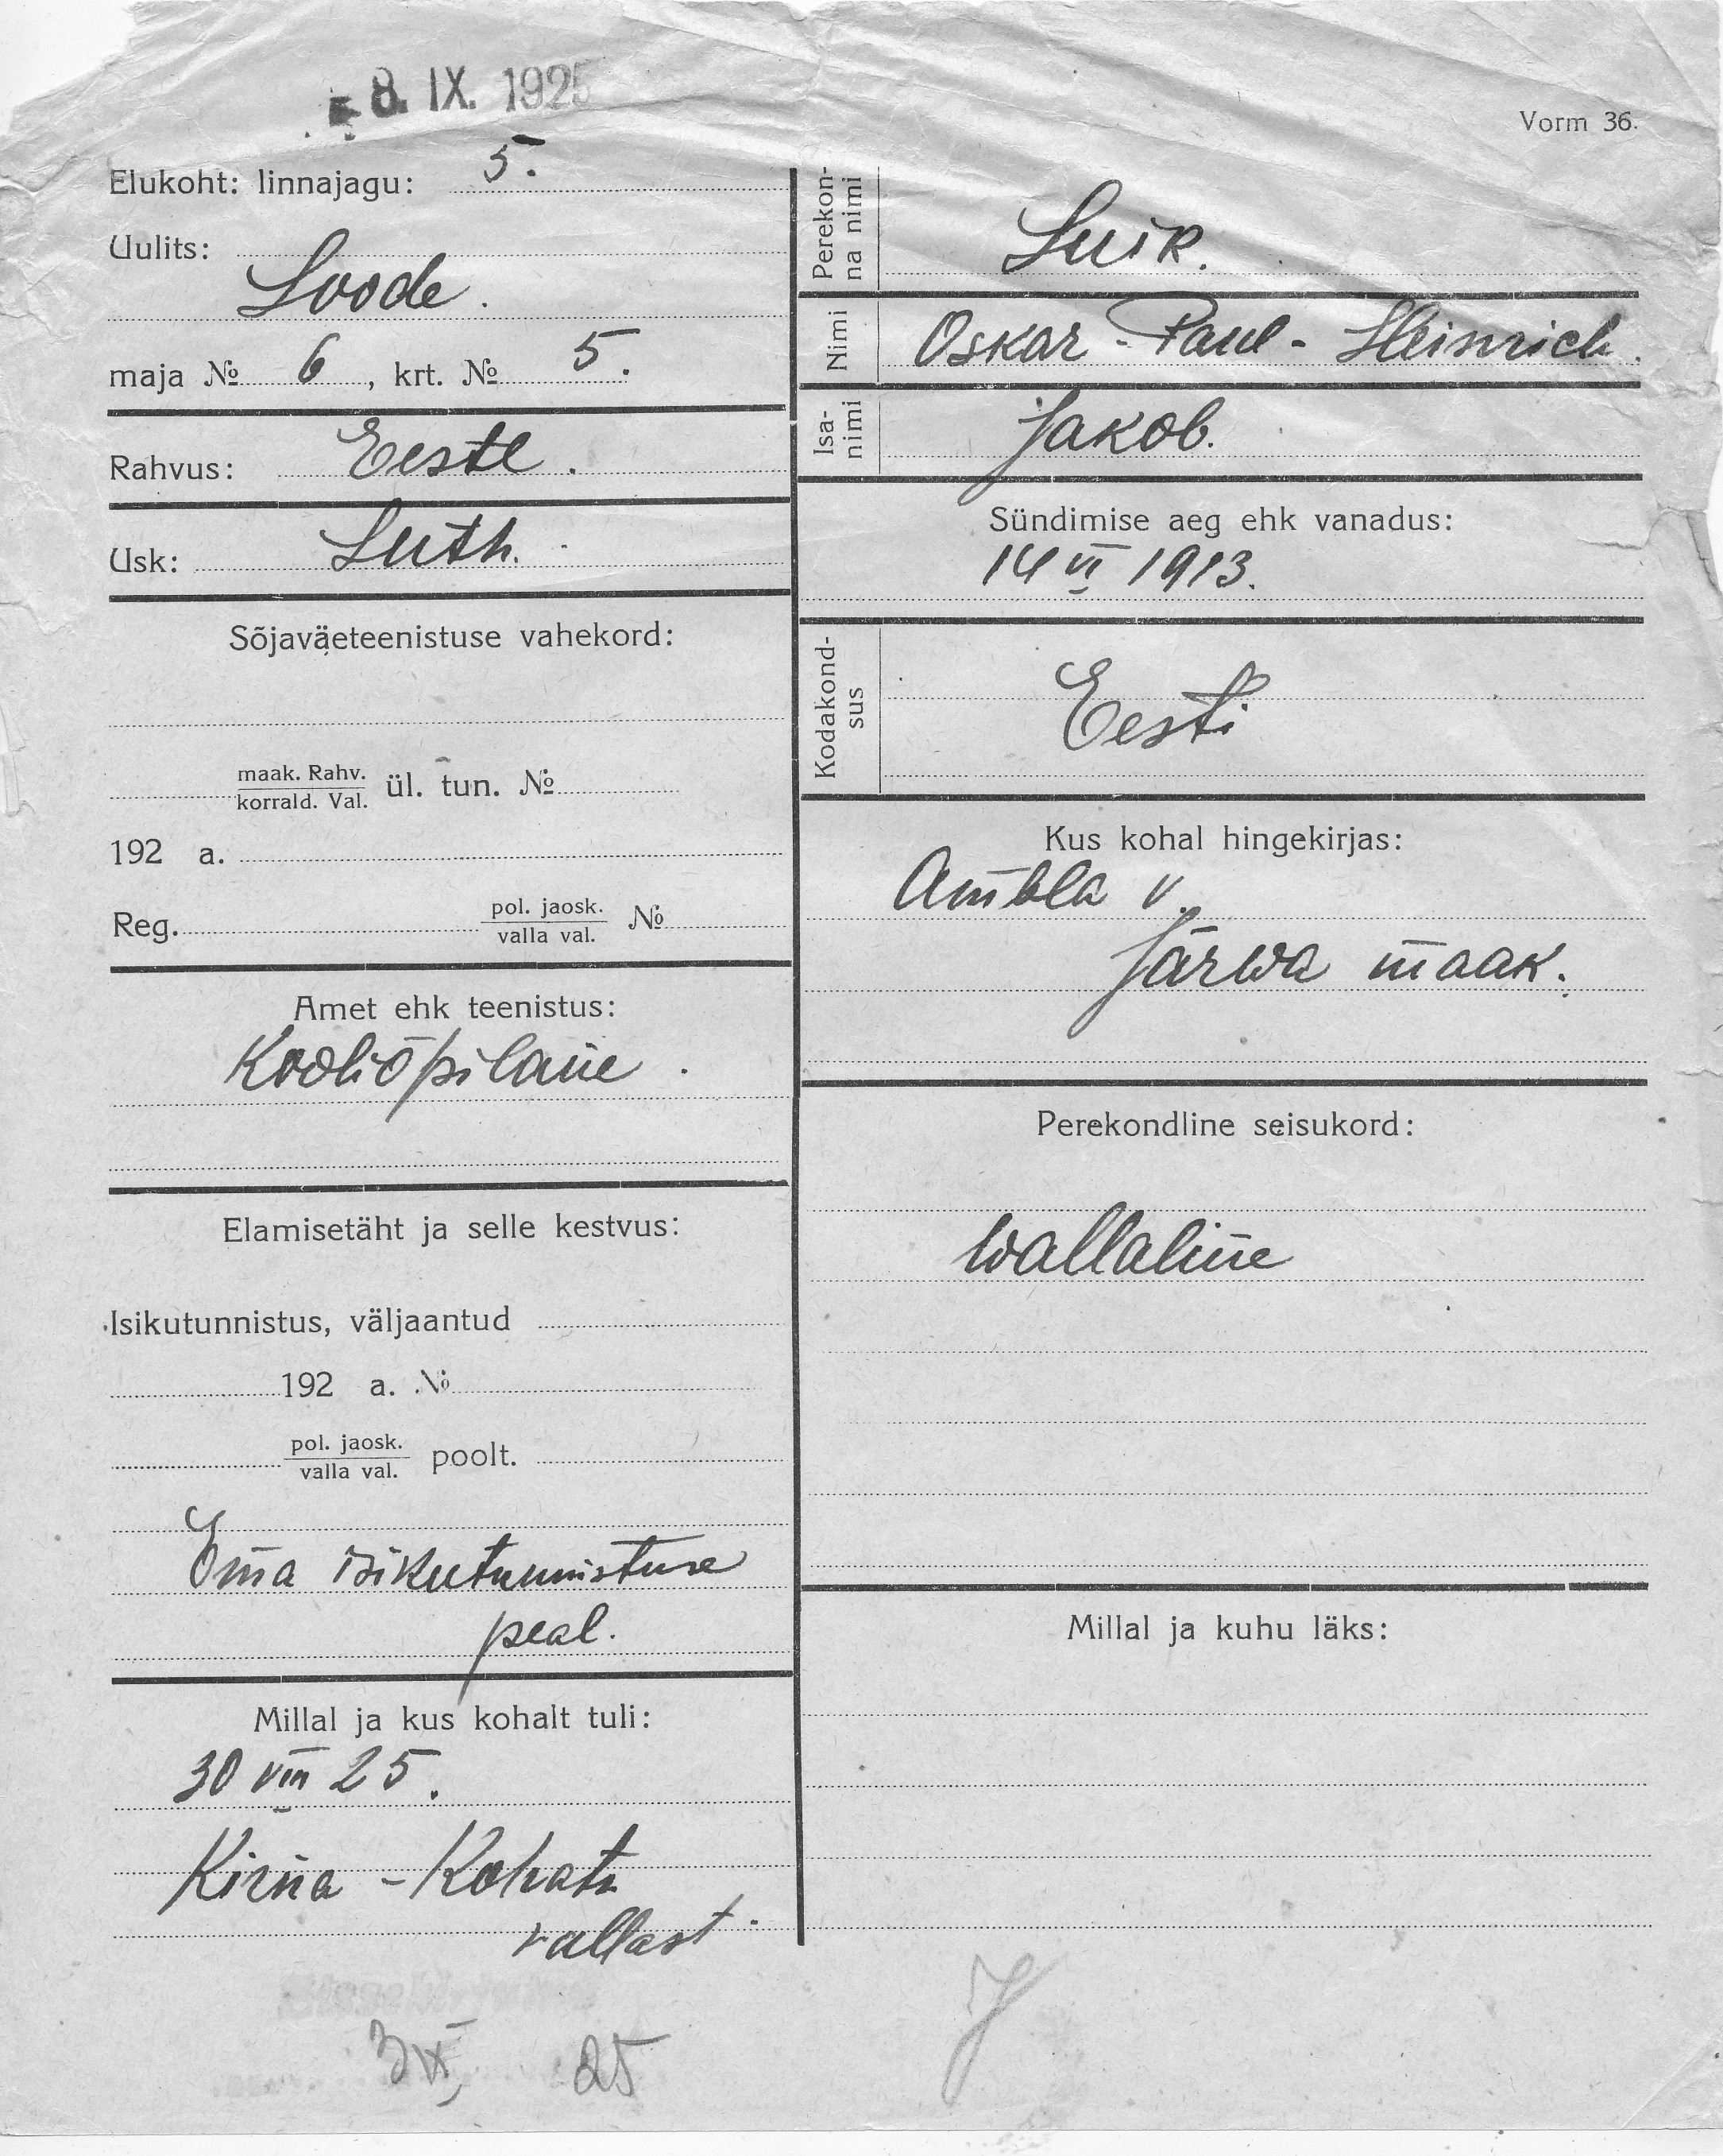 8. IX. 1925
Vorm 36.
Elukoht: linnajagu: 5.
Uulits:
Loode.
maja № 6, krt. № 5.
Rahvus: Eestl.
Usk: Luth.
Sõjaväeteenistuse vahekord:
maak. Rahv.
korrald. Val. ül. tun. №
192 a.
Reg. pol. jaosk.
valla val. №
Amet ehk teenistus:
Kooliõpilane.
Elamisetäht ja selle kestvus:
Isikutunnistus, väljaantud
192 a. №
pol. jaosk.
valla val. poolt.
Ema isikutunnistuse
peal.
Millal ja kus kohalt tuli:
30 VIII 25.
Kirna-Kohatu
vallast.
3 IX 25
Perekon-
na nimi
Luik.
Nimi
Oskar-Paul-Heinrich.
Isa-
nimi
Jakob.
Sündimise aeg ehk vanadus:
14 VI 1913.
Kodakond-
sus
Eesti
Kus kohal hingekirjas:
Ambla v.
Järwa maak.
Perekondline seisukord:
wallaline
Millal ja kuhu läks: